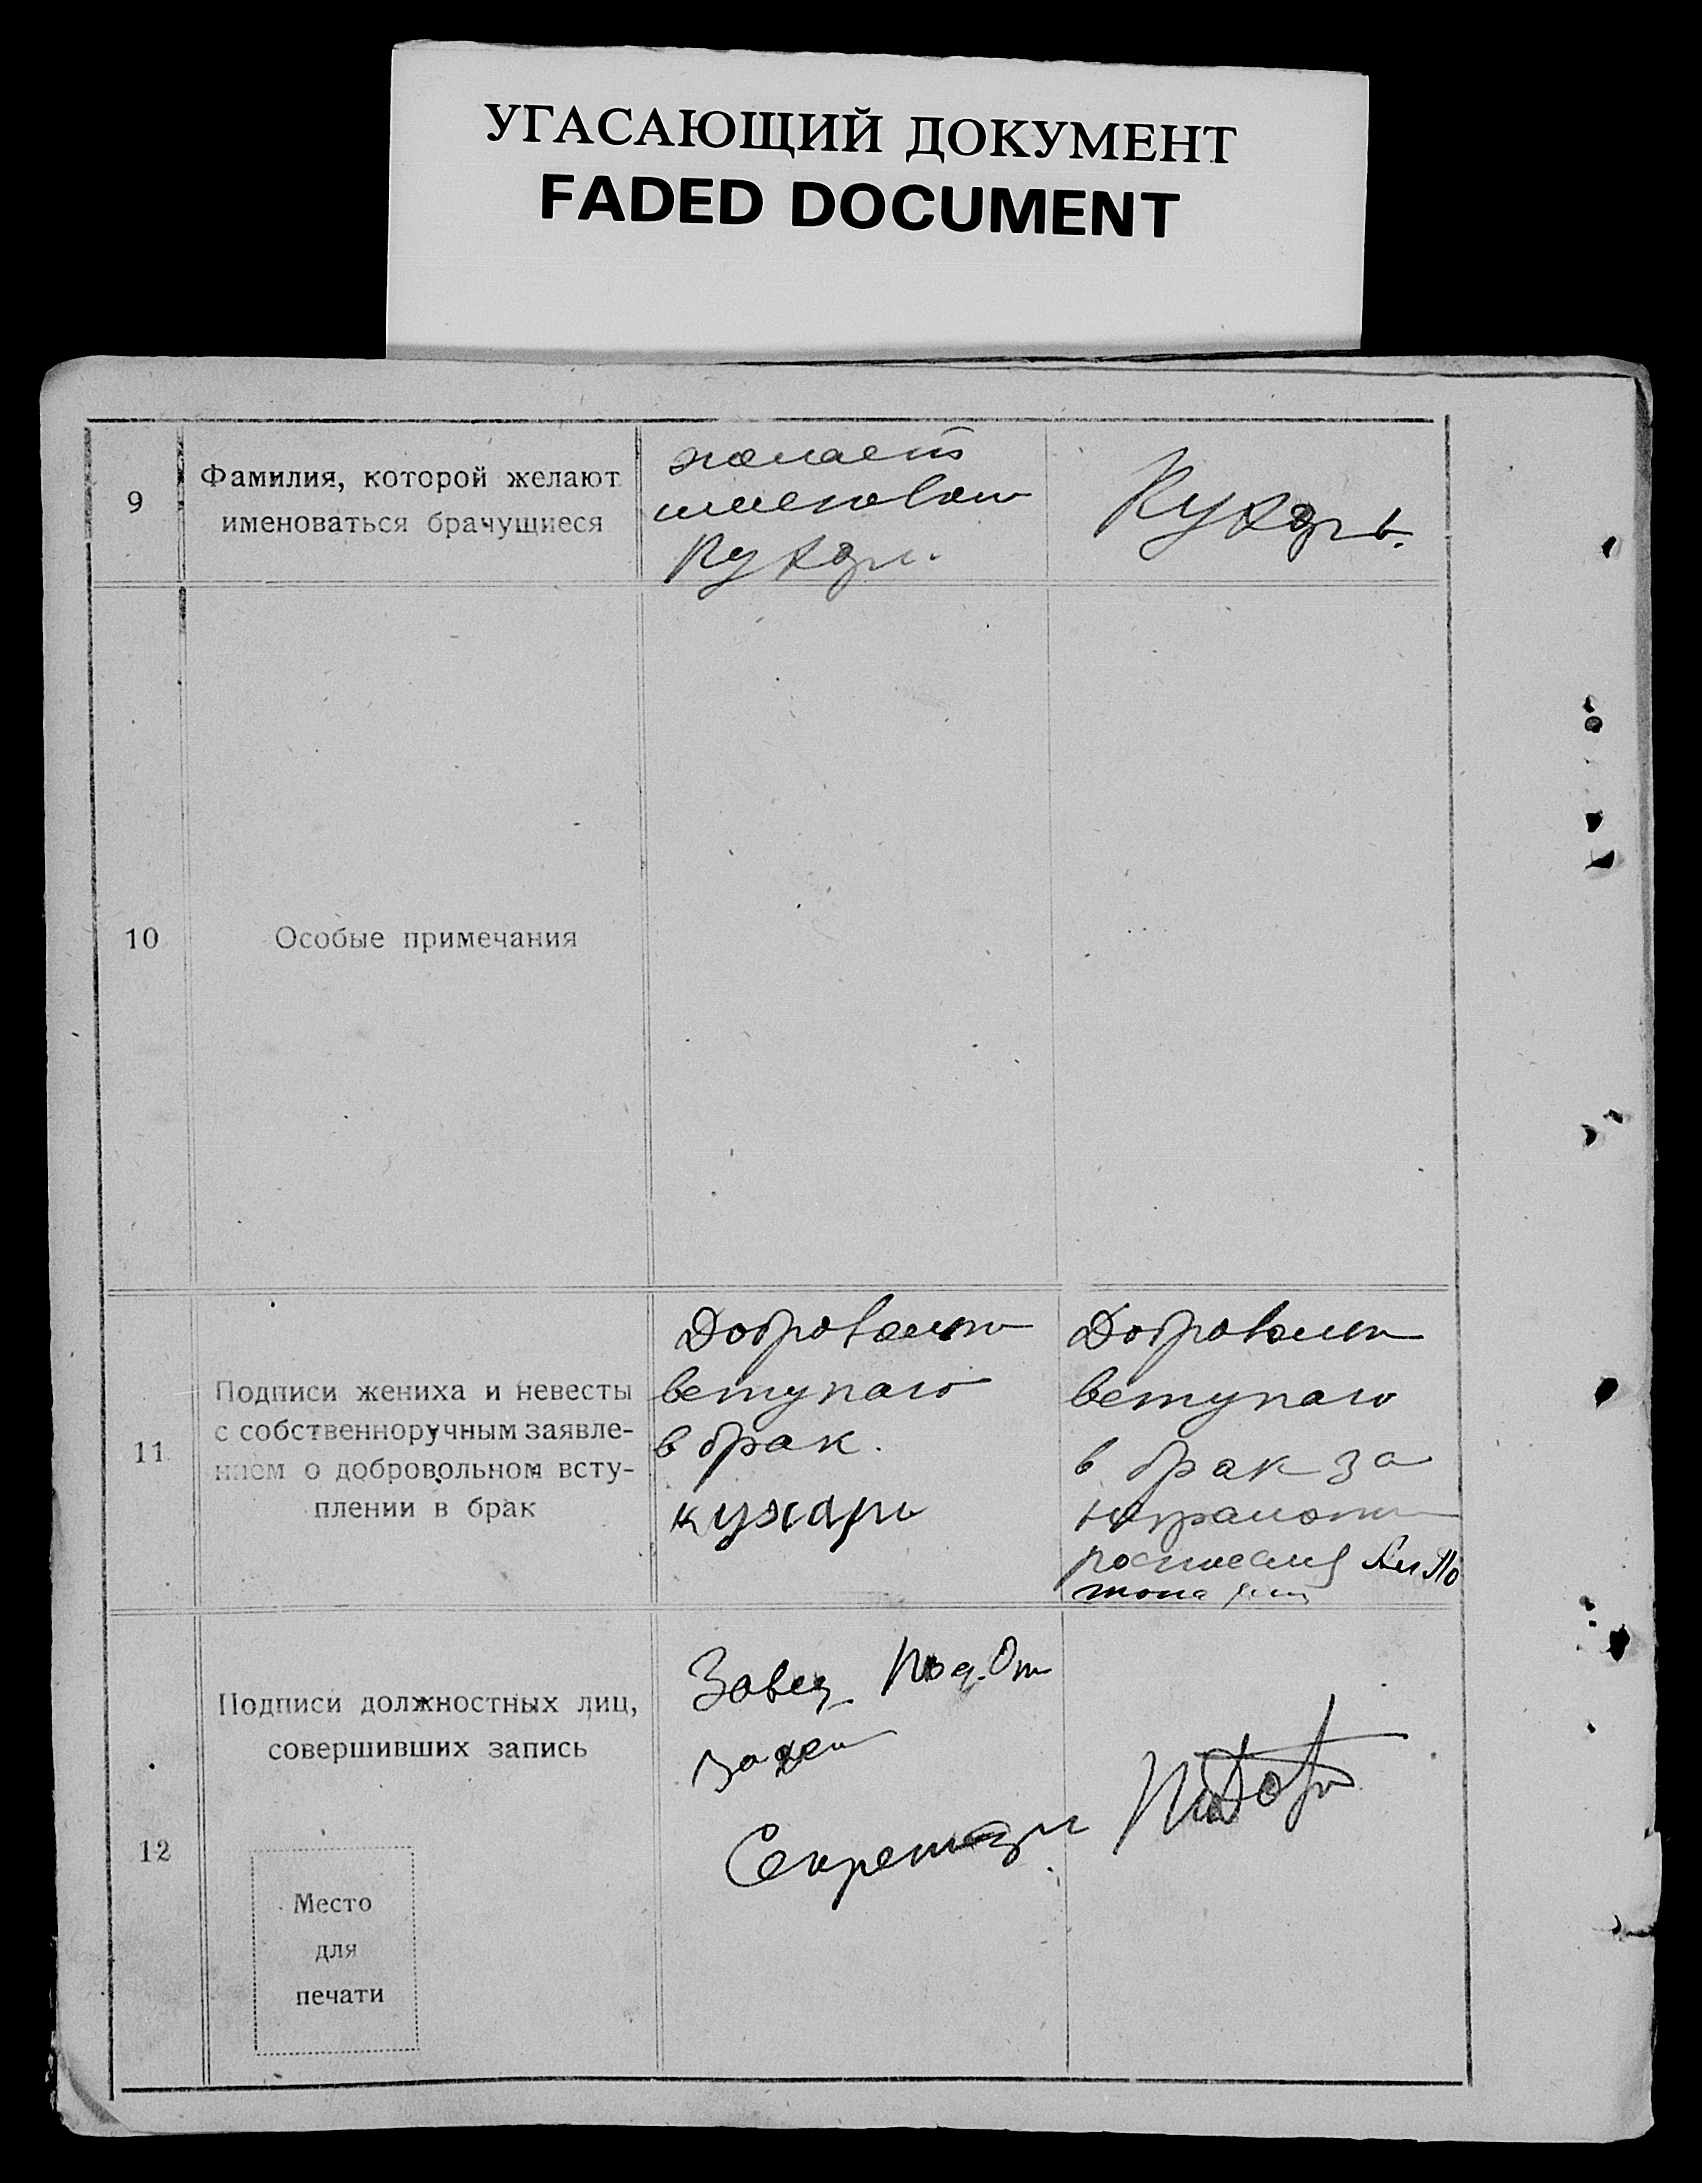 УГАСАЮЩИЙ ДОКУМЕНТ
FADED DOCUMENT
9
Фамилия, которой желают
именоваться брачущиеся
желает
именоват
Кухарь.
Кухарь.
10
Особые примечания
11
Подписи жениха и невесты
с собственноручным заявле-
нием о добровольном всту-
плении в брак
Добровольно
вступаю
в брак.
кухарь
Добровольно
вступаю
в брак за
неграмотн
12
Подписи должностных лиц,
совершивших запись
Место
для
печати
Завед
Секретарь